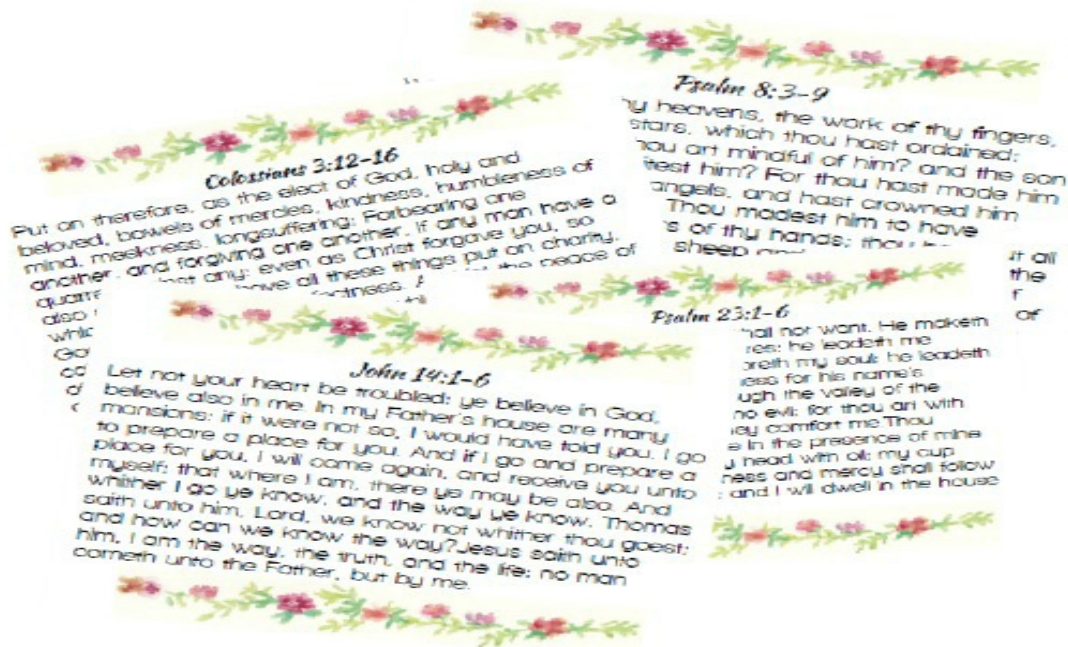 Psalm 8:3-9
heavens, the work of thy fingers,
stars, which thou hast ordained;
art mindful of him? and the son
him? For thou hast made him
angels, and hast crowned him
Thou madest him to have
of thy hands; thou
sheep
Colossians 3:12-16
Put on therefore, as the elect of God, holy and
beloved, bowels of mercies, kindness, humbleness of
mind, meekness, longsuffering; Forbearing one
another, and forgiving one another, if any man have a
any: even as Christ forgave you, so
also all these things put on charity,
the peace of
all
the
of
Psalm 23:1-6
not want. He maketh
he leadeth me
my soul: he leadeth
for his name's
the valley of the
no evil: for thou art with
comfort me.Thou
in the presence of mine
head with oil; my cup
and mercy shall follow
and I will dwell in the house
John 14:1-6
Let not your heart be troubled: ye believe in God,
believe also in me. In my Father's house are many
mansions: if it were not so, I would have told you. I go
to prepare a place for you. And if I go and prepare a
place for you, I will come again, and receive you unto
myself; that where I am, there ye may be also. And
whither I go ye know, and the way ye know. Thomas
saith unto him, Lord, we know not whither thou goest;
and how can we know the way?Jesus saith unto
him, I am the way, the truth, and the life: no man
cometh unto the Father, but by me.